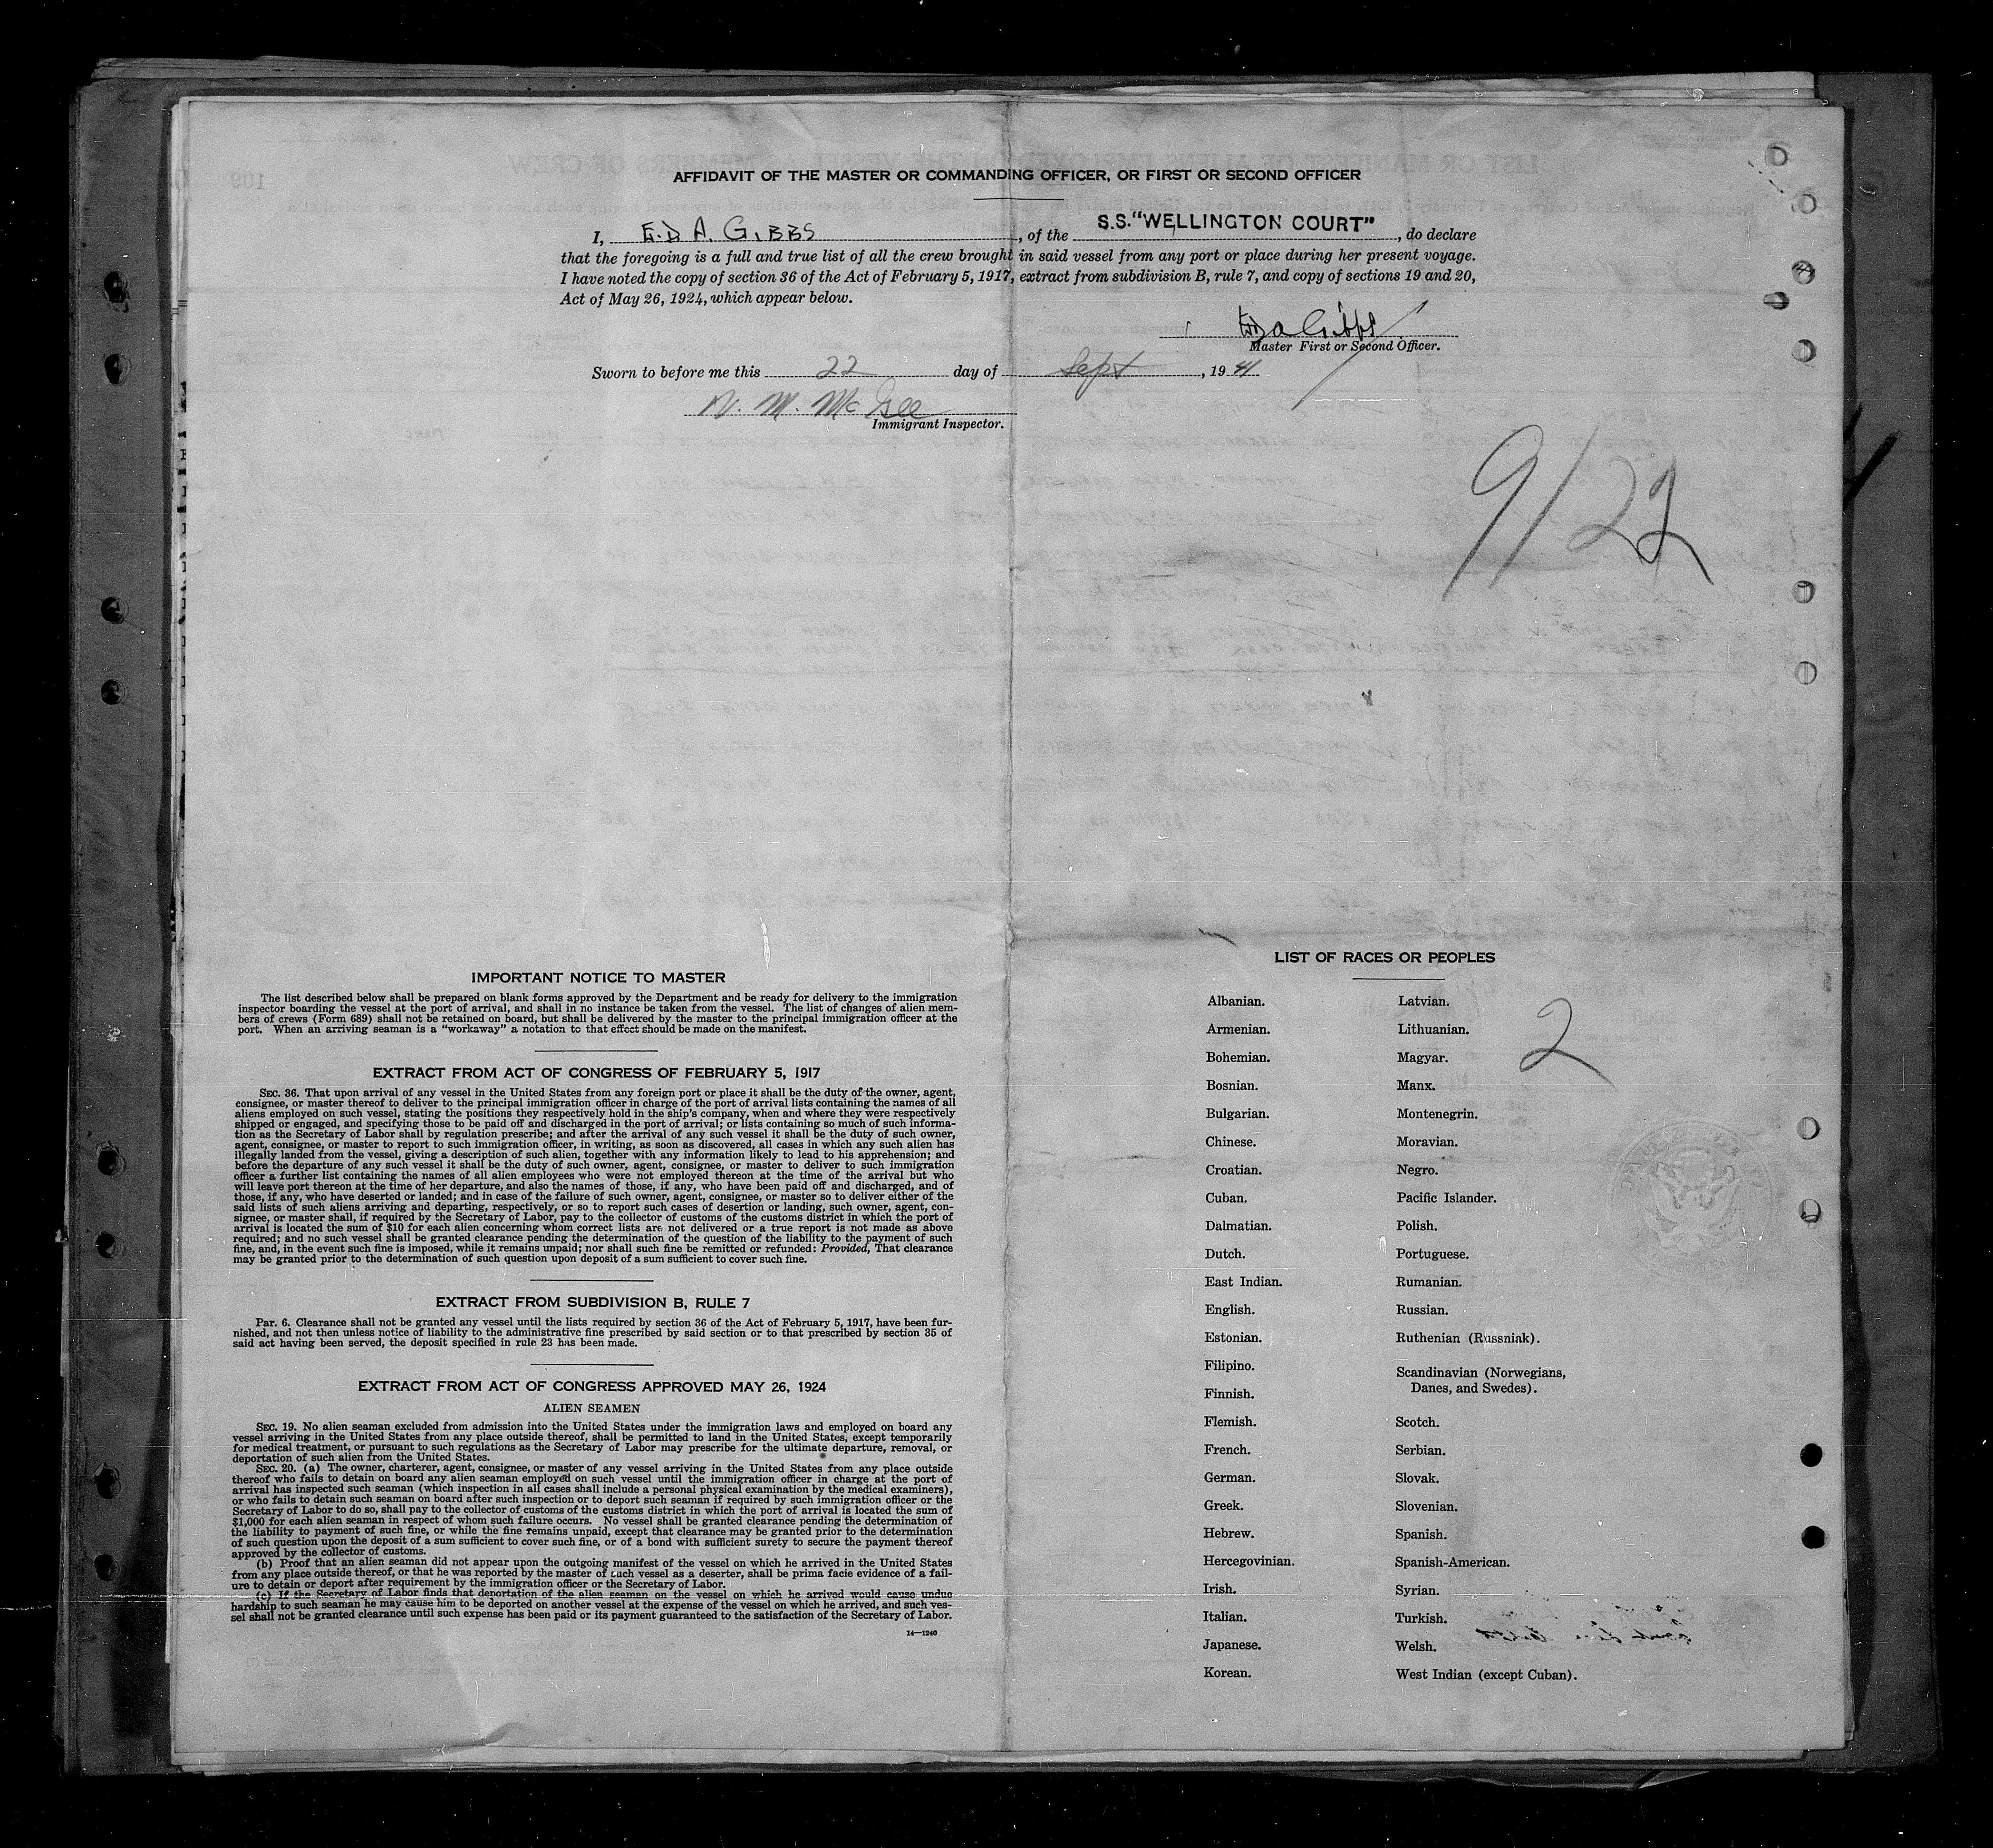 AFFIDAVIT OF THE MASTER OR COMMANDING OFFICER, OR FIRST OR SECOND OFFICER
I, E.D A. GIBBS, of the S.S. "WELLINGTON COURT", do declare
that the foregoing is a full and true list of all the crew brought in said vessel from any port or place during her present voyage.
I have noted the copy of section 36 of the Act of February 5, 1917, extract from subdivision B, rule 7, and copy of sections 19 and 20,
Act of May 26, 1924, which appear below.
EDA Gibbs
Master First or Second Officer.
Sworn to before me this 22 day of Sept, 1941
N. M. McGee
Immigrant Inspector.
9/22
IMPORTANT NOTICE TO MASTER
The list described below shall be prepared on blank forms approved by the Department and be ready for delivery to the immigration
inspector boarding the vessel at the port of arrival, and shall in no instance be taken from the vessel. The list of changes of alien mem-
bers of crews (Form 689) shall not be retained on board, but shall be delivered by the master to the principal immigration officer at the
port. When an arriving seaman is a "workaway" a notation to that effect should be made on the manifest.
EXTRACT FROM ACT OF CONGRESS OF FEBRUARY 5, 1917
SEC. 36. That upon arrival of any vessel in the United States from any foreign port or place it shall be the duty of the owner, agent,
consignee, or master thereof to deliver to the principal immigration officer in charge of the port of arrival lists containing the names of all
aliens employed on such vessel, stating the positions they respectively hold in the ship's company, when and where they were respectively
shipped or engaged, and specifying those to be paid off and discharged in the port of arrival; or lists containing so much of such informa-
tion as the Secretary of Labor shall by regulation prescribe; and after the arrival of any such vessel it shall be the duty of such owner,
agent, consignee, or master to report to such immigration officer, in writing, as soon as discovered, all cases in which any such alien has
illegally landed from the vessel, giving a description of such alien, together with any information likely to lead to his apprehension; and
before the departure of any such vessel it shall be the duty of such owner, agent, consignee, or master to deliver to such immigration
officer a further list containing the names of all alien employees who were not employed thereon at the time of the arrival but who
will leave port thereon at the time of her departure, and also the names of those, if any, who have been paid off and discharged, and of
those, if any, who have deserted or landed; and in case of the failure of such owner, agent, consignee, or master so to deliver either of the
said lists of such aliens arriving and departing, respectively, or so to report such cases of desertion or landing, such owner, agent, con-
signee, or master shall, if required by the Secretary of Labor, pay to the collector of customs of the customs district in which the port of
arrival is located the sum of $10 for each alien concerning whom correct lists are not delivered or a true report is not made as above
required; and no such vessel shall be granted clearance pending the determination of the question of the liability to the payment of such
fine, and, in the event such fine is imposed, while it remains unpaid; nor shall such fine be remitted or refunded: Provided, That clearance
may be granted prior to the determination of such question upon deposit of a sum sufficient to cover such fine.
EXTRACT FROM SUBDIVISION B, RULE 7
Par. 6. Clearance shall not be granted any vessel until the lists required by section 36 of the Act of February 5, 1917, have been fur-
nished, and not then unless notice of liability to the administrative fine prescribed by said section or to that prescribed by section 35 of
said act having been served, the deposit specified in rule 23 has been made.
EXTRACT FROM ACT OF CONGRESS APPROVED MAY 26, 1924
ALIEN SEAMEN
SEC. 19. No alien seaman excluded from admission into the United States under the immigration laws and employed on board any
vessel arriving in the United States from any place outside thereof, shall be permitted to land in the United States, except temporarily
for medical treatment, or pursuant to such regulations as the Secretary of Labor may prescribe for the ultimate departure, removal, or
deportation of such alien from the United States.
SEC. 20. (a) The owner, charterer, agent, consignee, or master of any vessel arriving in the United States from any place outside
thereof who fails to detain on board any alien seaman employed on such vessel until the immigration officer in charge at the port of
arrival has inspected such seaman (which inspection in all cases shall include a personal physical examination by the medical examiners),
or who fails to detain such seaman on board after such inspection or to deport such seaman if required by such immigration officer or the
Secretary of Labor to do so, shall pay to the collector of customs of the customs district in which the port of arrival is located the sum of
$1,000 for each alien seaman in respect of whom such failure occurs. No vessel shall be granted clearance pending the determination of
the liability to payment of such fine, or while the fine remains unpaid, except that clearance may be granted prior to the determination
of such question upon the deposit of a sum sufficient to cover such fine, or of a bond with sufficient surety to secure the payment thereof
approved by the collector of customs.
(b) Proof that an alien seaman did not appear upon the outgoing manifest of the vessel on which he arrived in the United States
from any place outside thereof, or that he was reported by the master of such vessel as a deserter, shall be prima facie evidence of a fail-
ure to detain or deport after requirement by the immigration officer or the Secretary of Labor.
(c) If the Secretary of Labor finds that deportation of the alien seaman on the vessel on which he arrived would cause undue
hardship to such seaman he may cause him to be deported on another vessel at the expense of the vessel on which he arrived, and such ves-
sel shall not be granted clearance until such expense has been paid or its payment guaranteed to the satisfaction of the Secretary of Labor.
14—1240
LIST OF RACES OR PEOPLES
Albanian.
Armenian.
Bohemian.
Bosnian.
Bulgarian.
Chinese.
Croatian.
Cuban.
Dalmatian.
Dutch.
East Indian.
English.
Estonian.
Filipino.
Finnish.
Flemish.
French.
German.
Greek.
Hebrew.
Hercegovinian.
Irish.
Italian.
Japanese.
Korean.
Latvian.
Lithuanian.
Magyar.
Manx.
Montenegrin.
Moravian.
Negro.
Pacific Islander.
Polish.
Portuguese.
Rumanian.
Russian.
Ruthenian (Russniak).
Scandinavian (Norwegians,
Danes, and Swedes).
Scotch.
Serbian.
Slovak.
Slovenian.
Spanish.
Spanish-American.
Syrian.
Turkish.
Welsh.
West Indian (except Cuban).
2